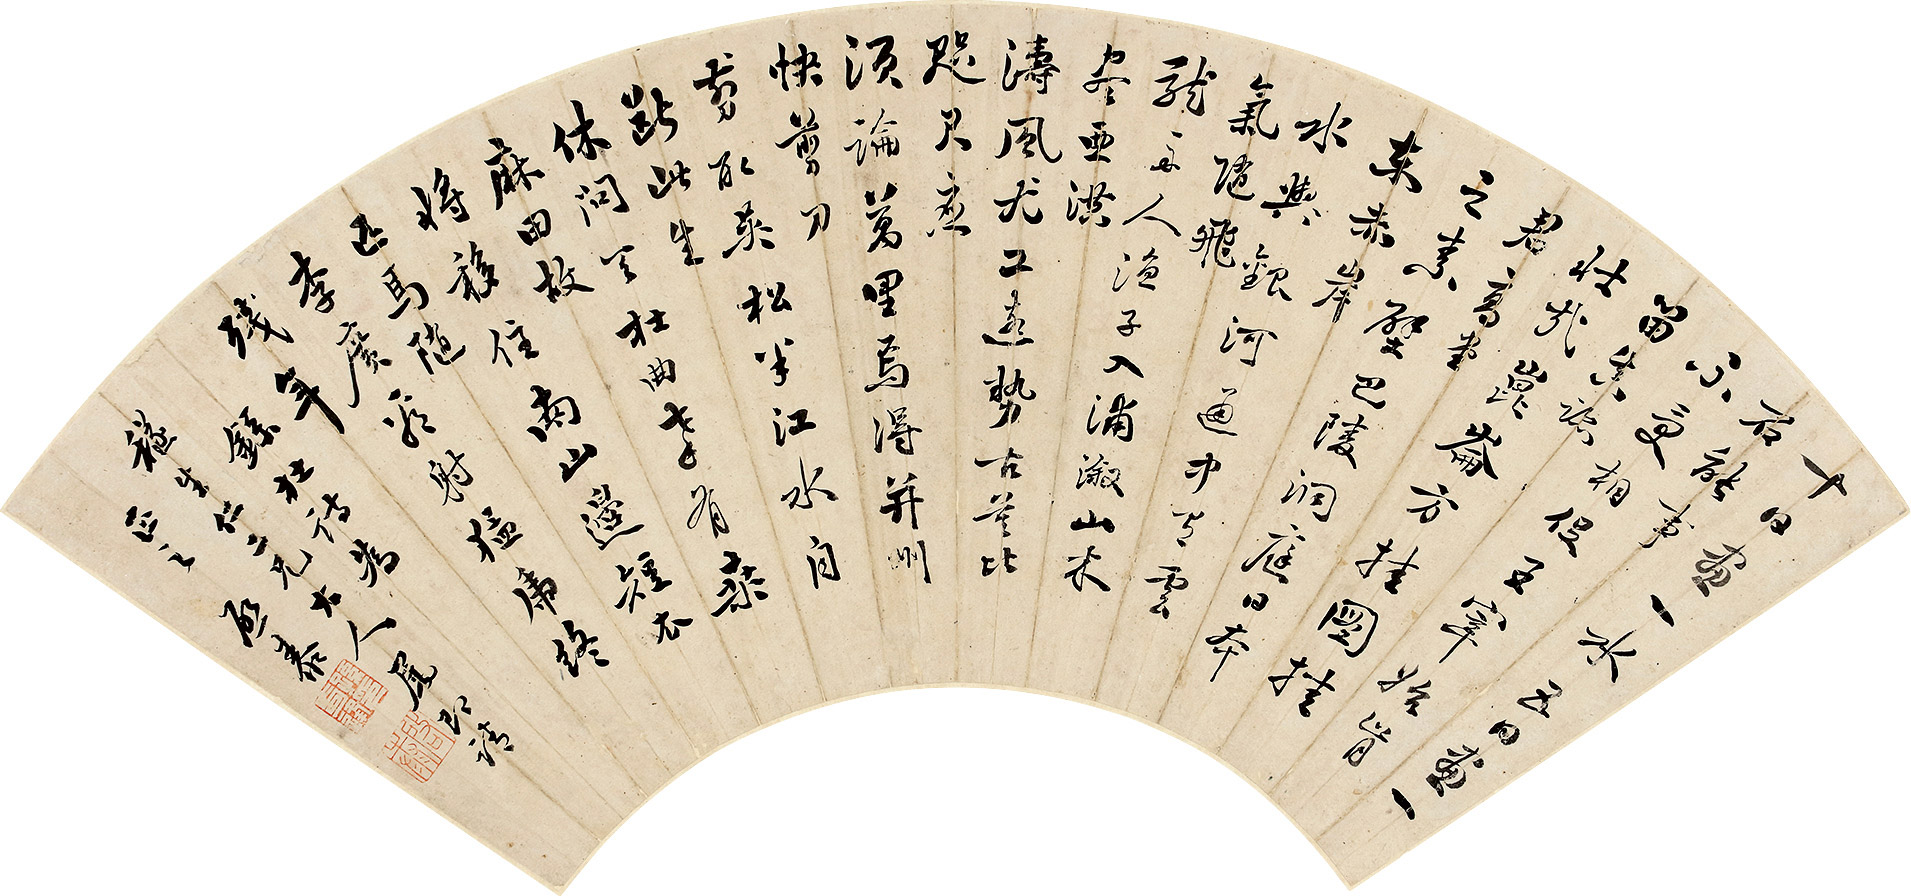 十日畫一水五日畫一
石能事
不受相促迫王宰始肯
留真跡
壯哉崑崙方壺圖挂
君高堂
之素壁巴陵洞庭日本
東赤岸
水與銀河通中有雲
氣隨飛
龍舟人漁子入浦漵山木
盡亞洪
濤風尤工遠勢古莫比
咫尺應
須論萬里焉得并州
快剪刀
剪取吳松半江水自
斷此生
休問天杜曲幸有桑
麻田故
將移住南山邊短衣
匹馬隨
李廣看射猛虎終
殘年
錄杜詩為
穉生仁兄大人屬即請
正之 啟泰